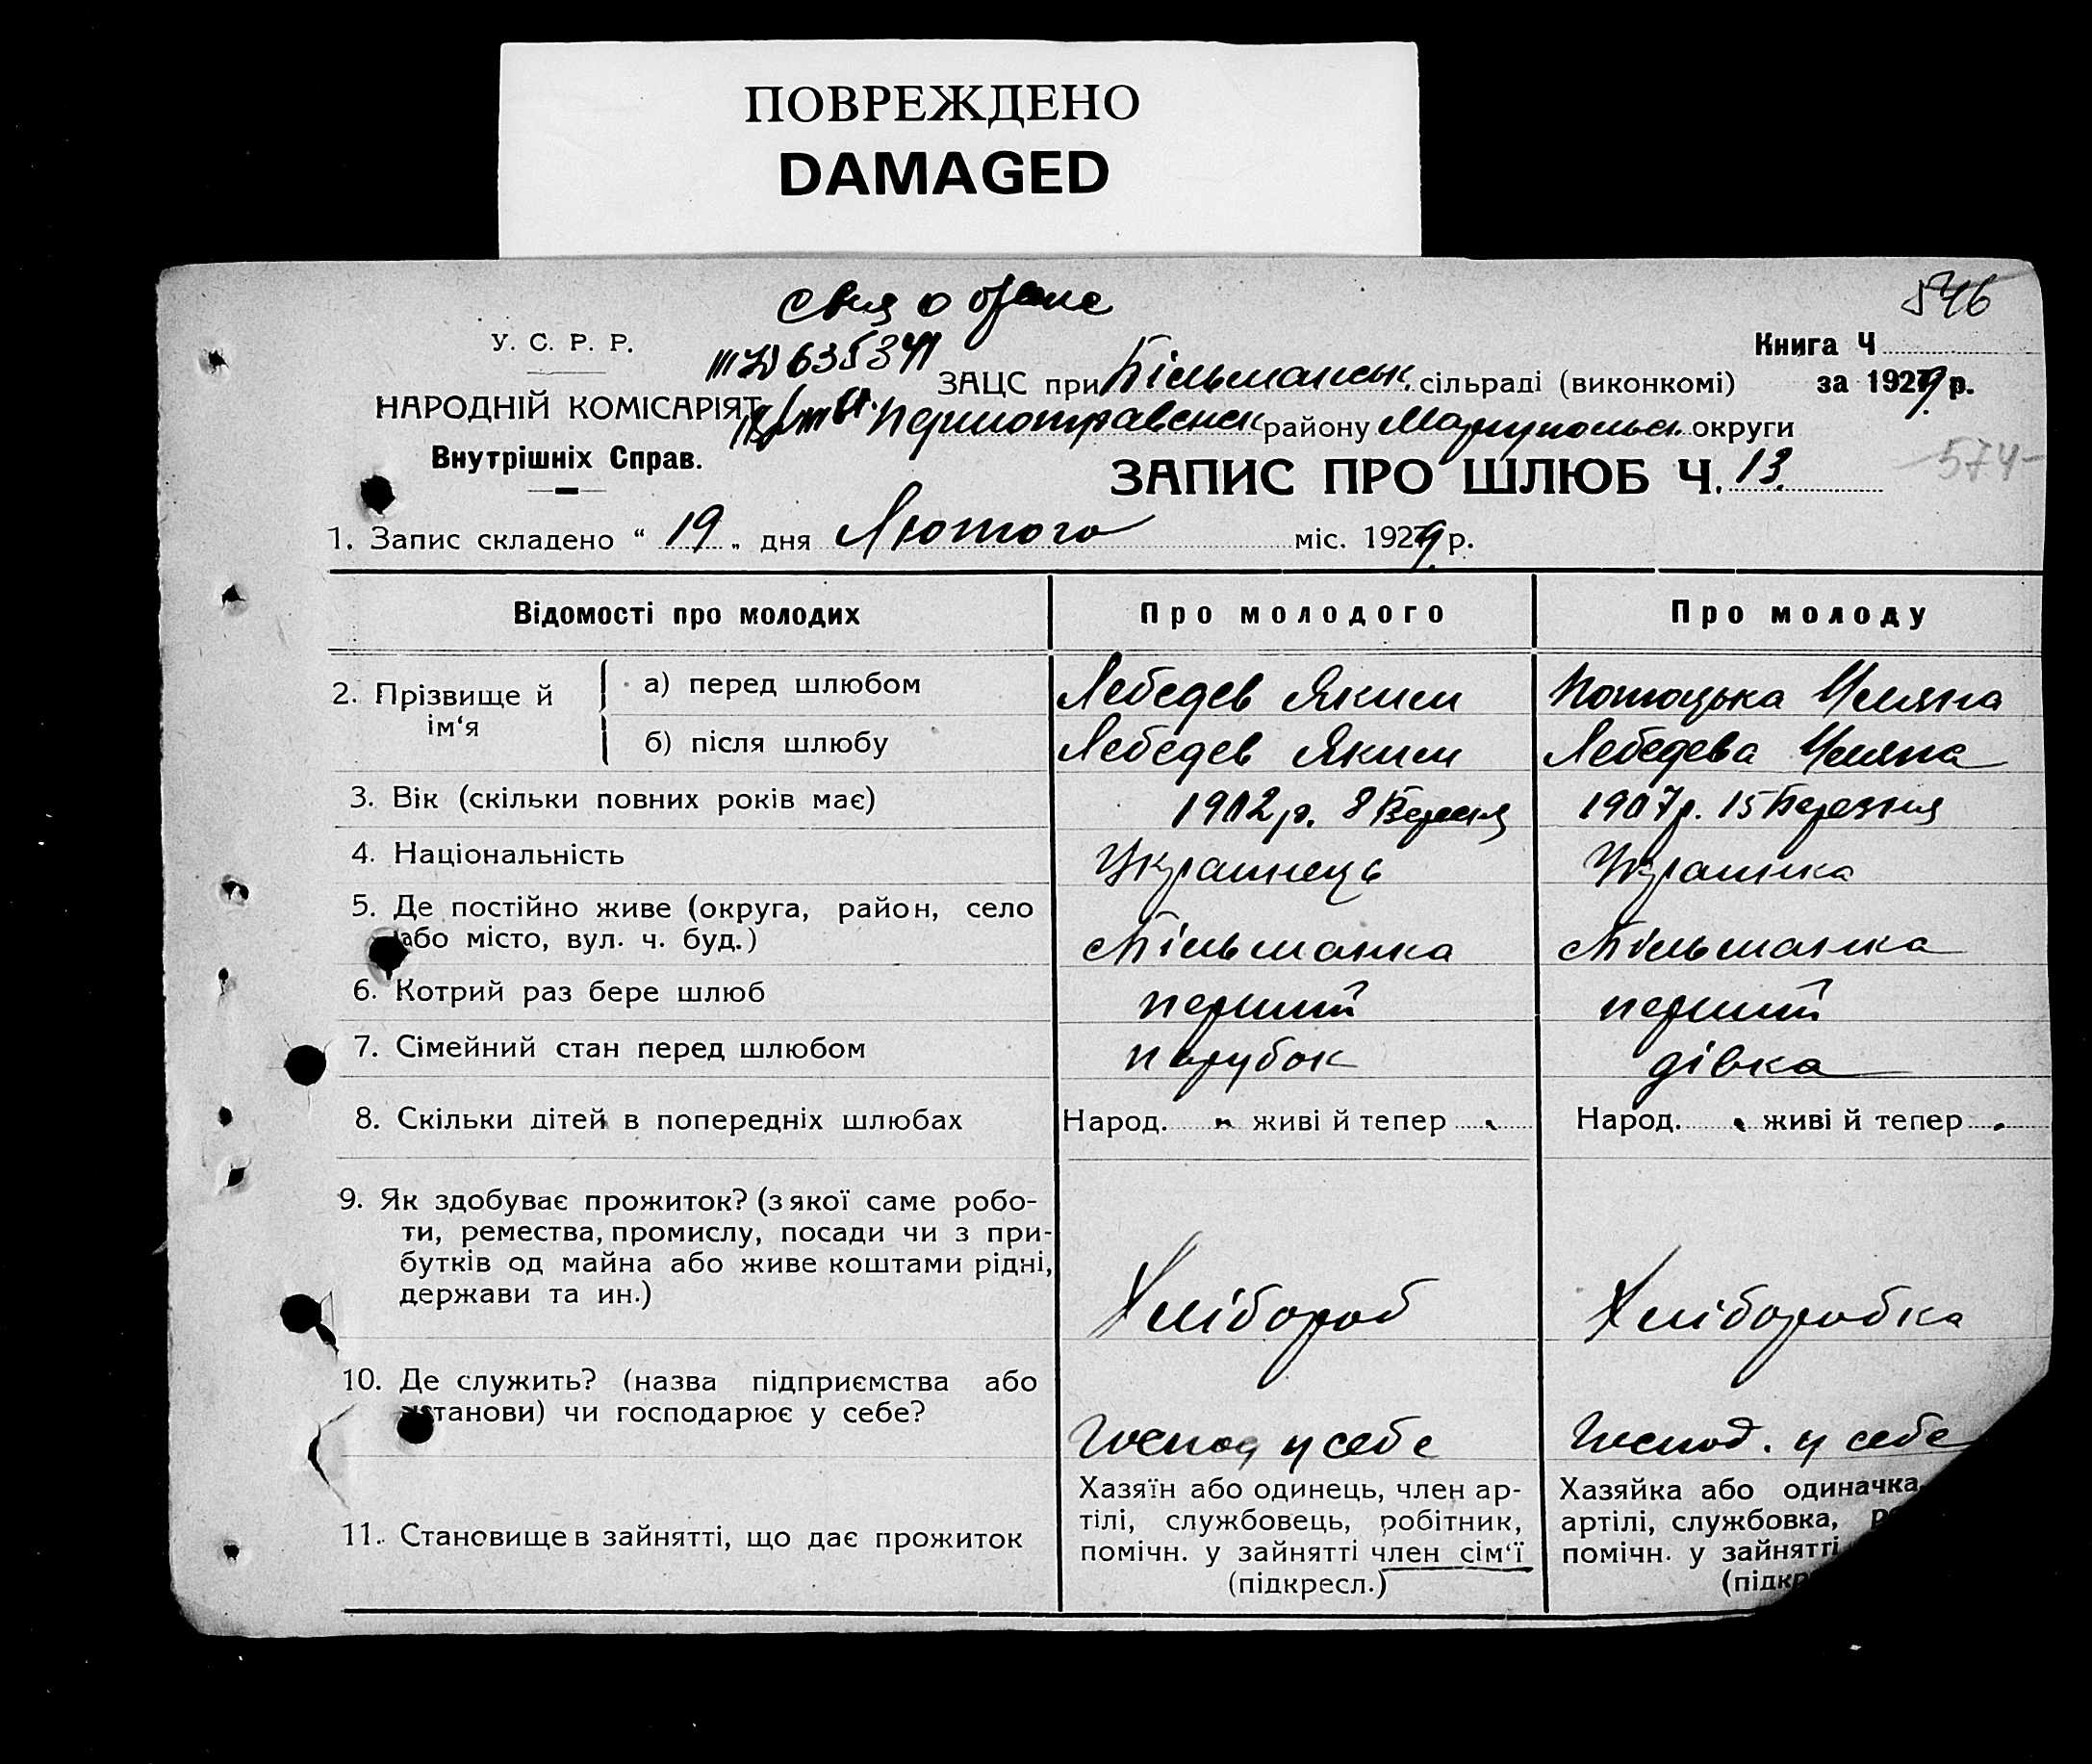 ПОВРЕЖДЕНО
DAMAGED
546
У. С. Р. Р.
635341
Книга Ч
НАРОДНІЙ КОМІСАРІЯТ
ЗАЦС при Більманськ. сільраді (виконкомі) за 1929 р.
Внутрішніх Справ.
Першотравенськ району Маріупольськ. округи
ЗАПИС ПРО ШЛЮБ Ч. 13.
574
1. Запис складено “ 19 „ дня Лютого міс. 1929 р.
Відомості про молодих
Про молодого
Про молоду
2. Прізвище й ім‘я
а) перед шлюбом
Лебедев Яким
Потоцька Уляна
б) після шлюбу
Лебедев Яким
Лебедева Уляна
3. Вік (скільки повних років має)
1902 р. 8
1907 р. 15 Березня
4. Національність
Украинець
Украинка
5. Де постійно живе (округа, район, село
або місто, вул. ч. буд.)
Більманка
Більманка
6. Котрий раз бере шлюб
перший
перший
7. Сімейний стан перед шлюбом
парубок
дівка
8. Скільки дітей в попередніх шлюбах
Народ. живі й тепер
Народ. живі й тепер
9. Як здобуває прожиток? (з якої саме робо-
ти, ремества, промислу, посади чи з при-
бутків од майна або живе коштами рідні,
держави та ин.)
Хлібороб
Хліборобка
10. Де служить? (назва підприємства або
установи) чи господарює у себе?
Господ у себе
Господ. у себе
11. Становище в зайнятті, що дає прожиток
Хазяїн або одинець, член ар-
тілі, службовець, робітник,
помічн. у зайнятті член сім‘ї
(підкресл.)
Хазяйка або одиначка,
артілі, службовка,
помічн. у зайнятті